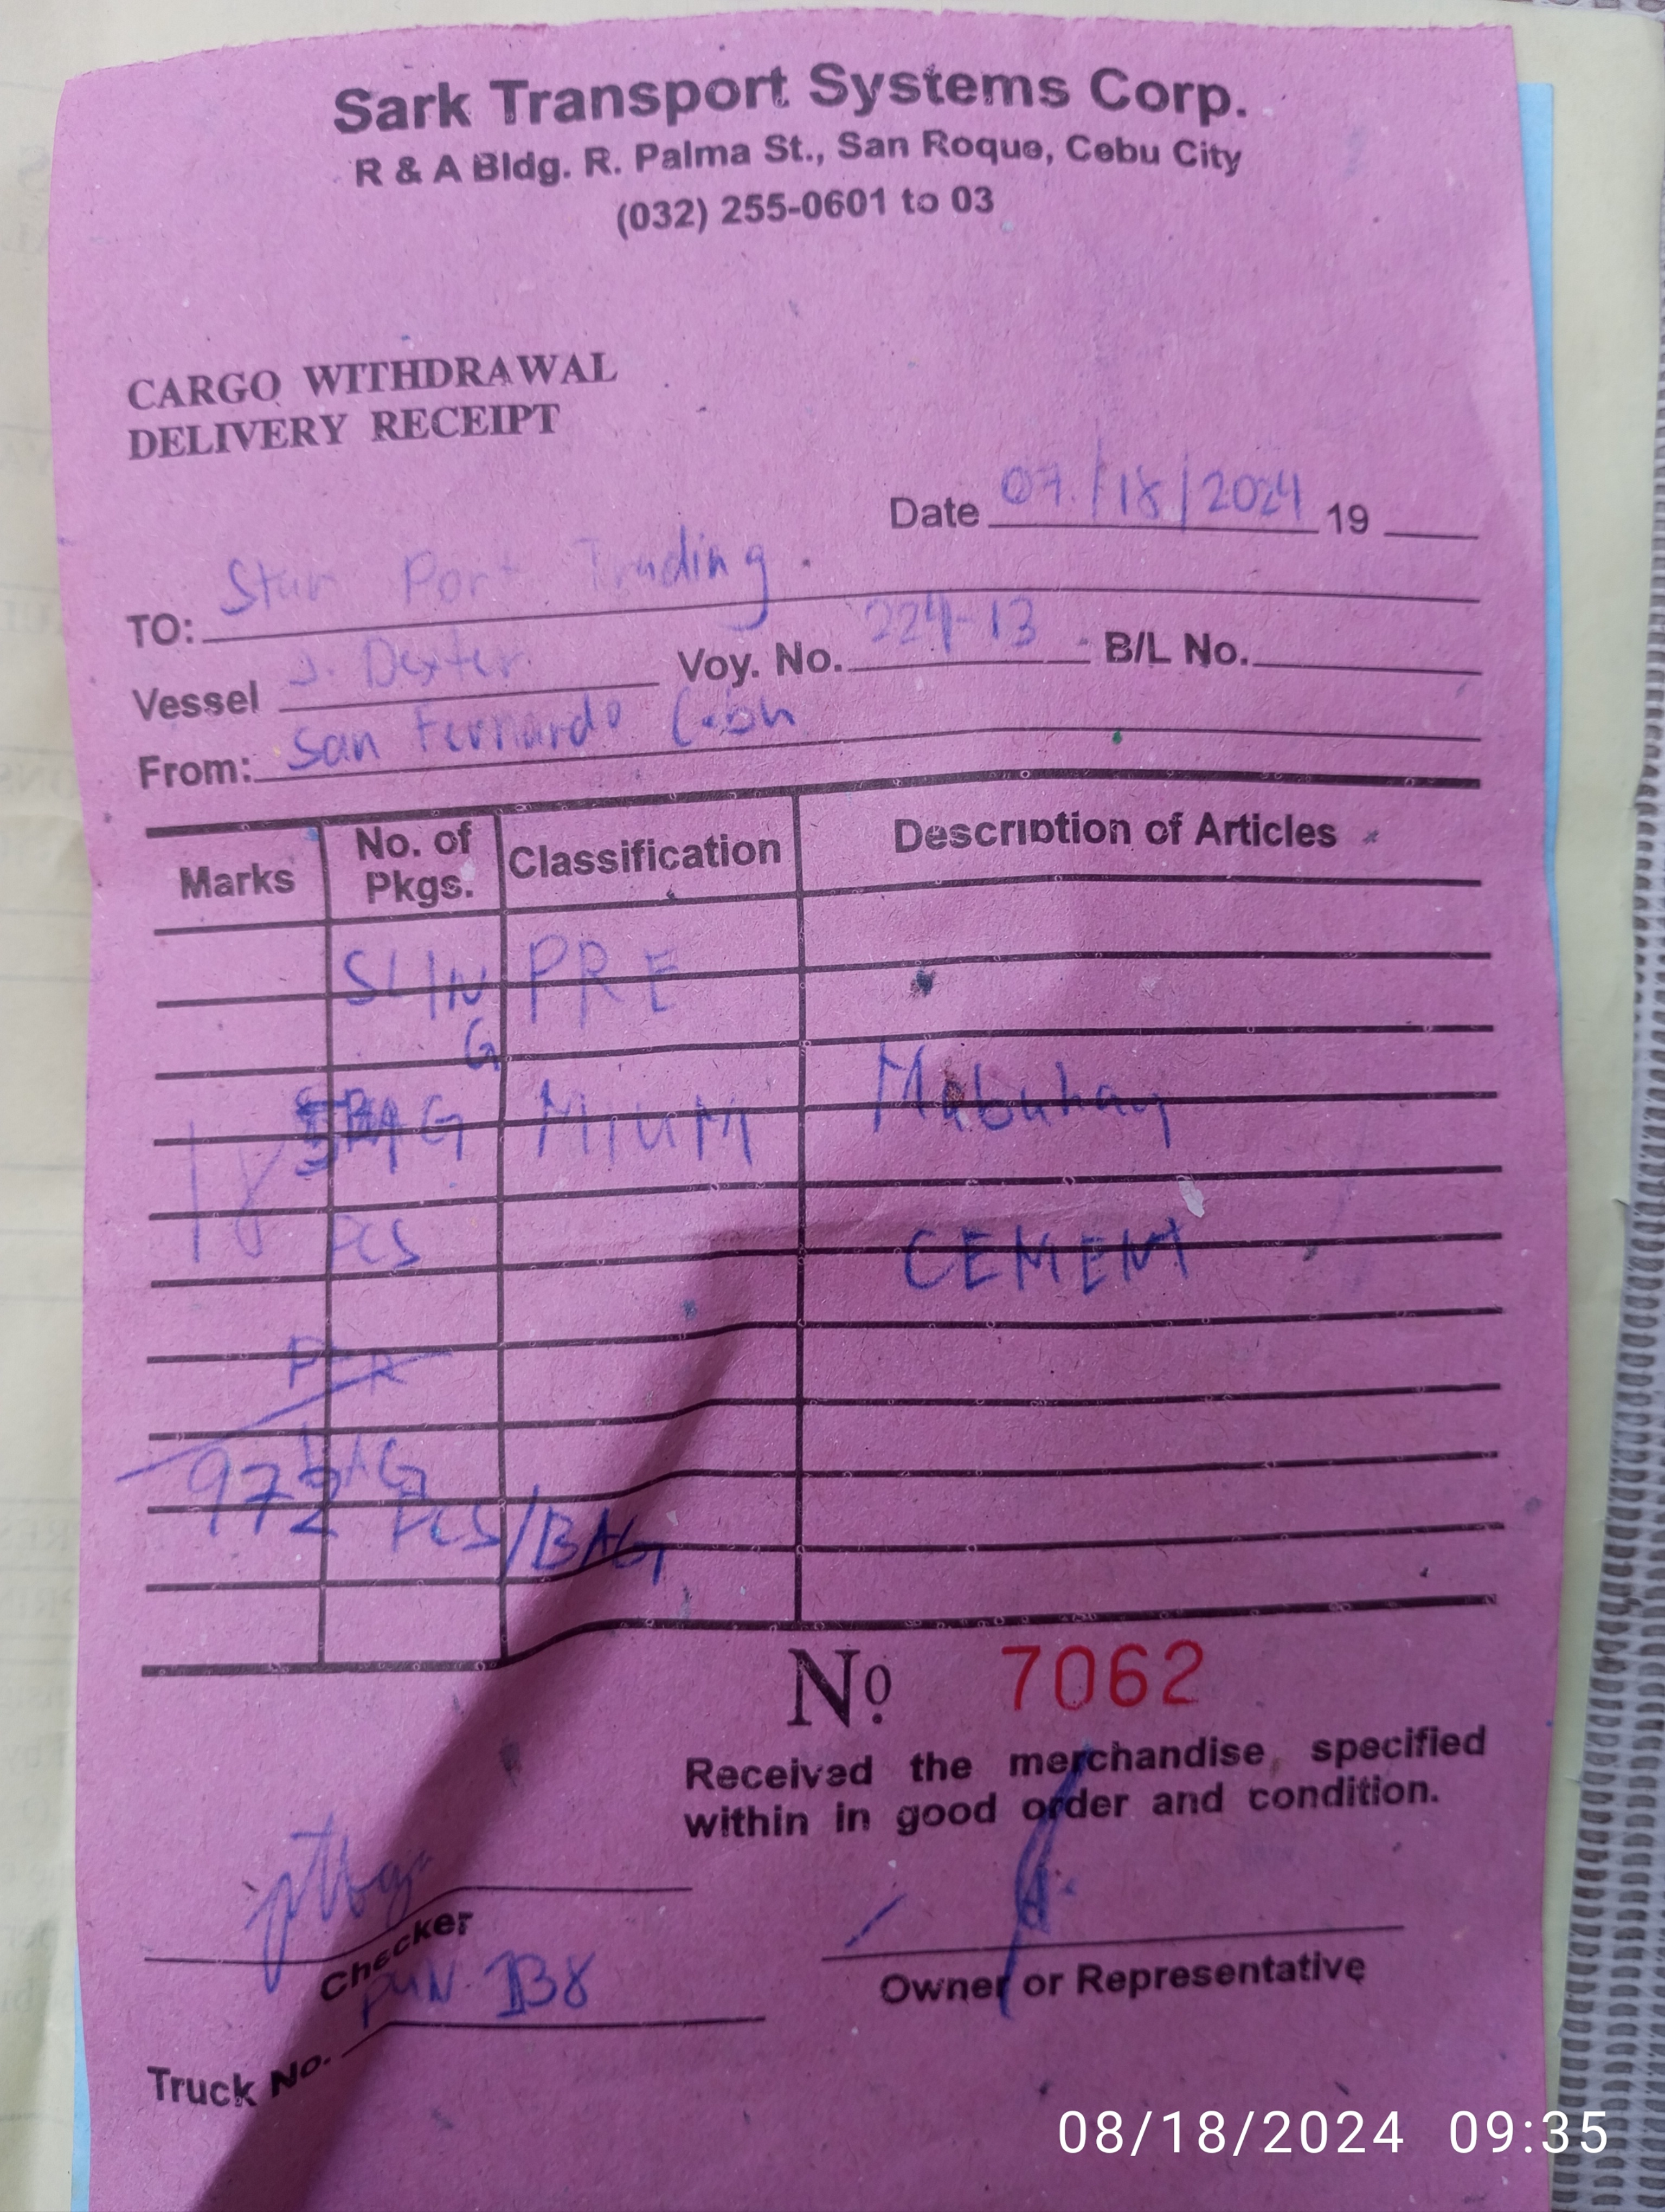 Sark Transport Systems Corp.
R & A Bldg. R. Palma St., San Roque, Cebu City
(032) 255-0601 to 03
CARGO WITHDRAWAL
DELIVERY RECEIPT
Date 07/18/2024 19
TO: Star Port Trading.
Vessel J. Dexter Voy. No. 224-13 B/L No.
From: San Fernando Cebu
Marks No. of Pkgs. Classification Description of Articles
SLING PRE
18 BAG MIUM Mabuhay
PCS CEMENT
PER
BAG
972 PCS/BAG
No 7062
Received the merchandise specified
within in good order and condition.
Checker
Owner or Representative
Truck No.
08/18/2024 09:35